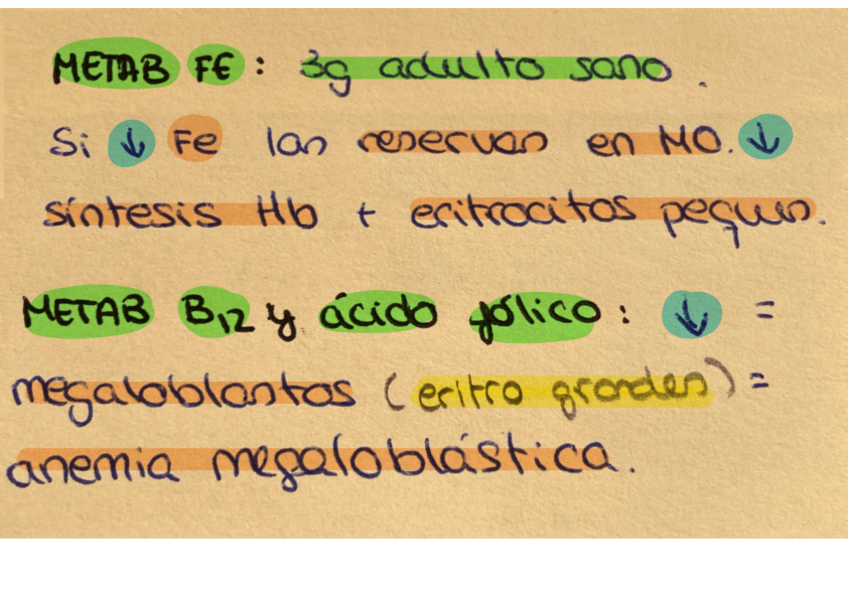 METAB FE: 3g adulto sano.
Si ↓ Fe las reservas en MO. ↓
síntesis Hb + eritrocitos pequeños.
METAB B12 y ácido fólico: ↓ =
megaloblastos (eritro grandes) =
anemia megaloblástica.